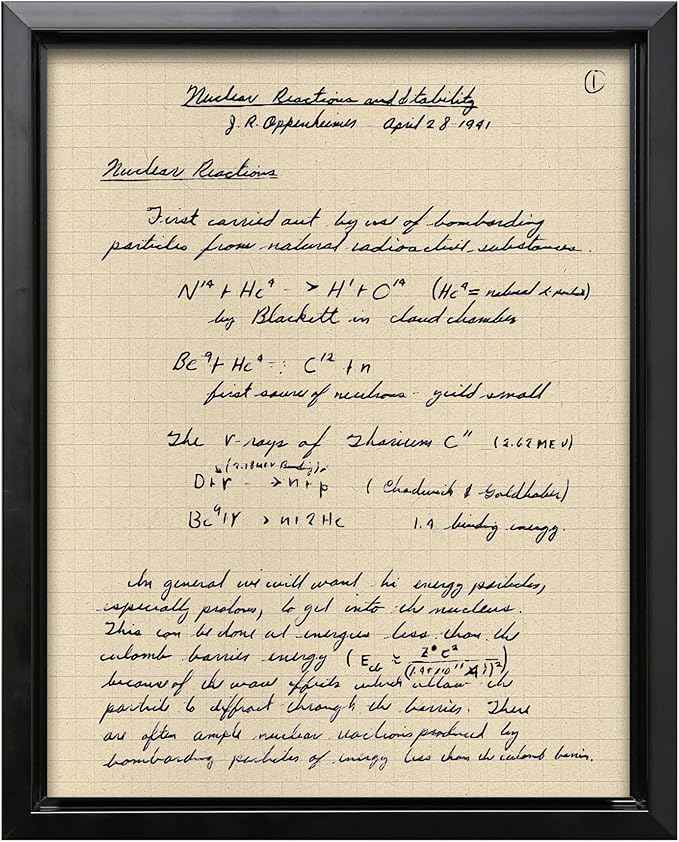 ①
Nuclear Reactions and Stability
J. R. Oppenheimer April 28 1941
Nuclear Reactions
First carried out by use of bombarding
particles from natural radioactive substances.
N¹⁴ + He⁴ -> H¹ + O¹⁴ (He⁴ = natural α-particle)
by Blackett in cloud chamber
Be⁹ + He⁴ -: C¹² + n
first source of neutrons - yield small
The γ-rays of Thorium C" (2.62 MEV)
(2.18 MEV Binding)
D + γ -> n + p (Chadwick & Goldhaber)
Be⁹ + γ > n + 2He 1.4 binding energy.
In general we will want hi energy particles,
especially protons, to get into the nucleus.
This can be done at energies less than the
culomb barrier energy (
because of the wave effects which allow the
particle to diffract through the barrier. There
are often ample nuclear reactions produced by
bombarding particles of energy less than the culomb barrier.